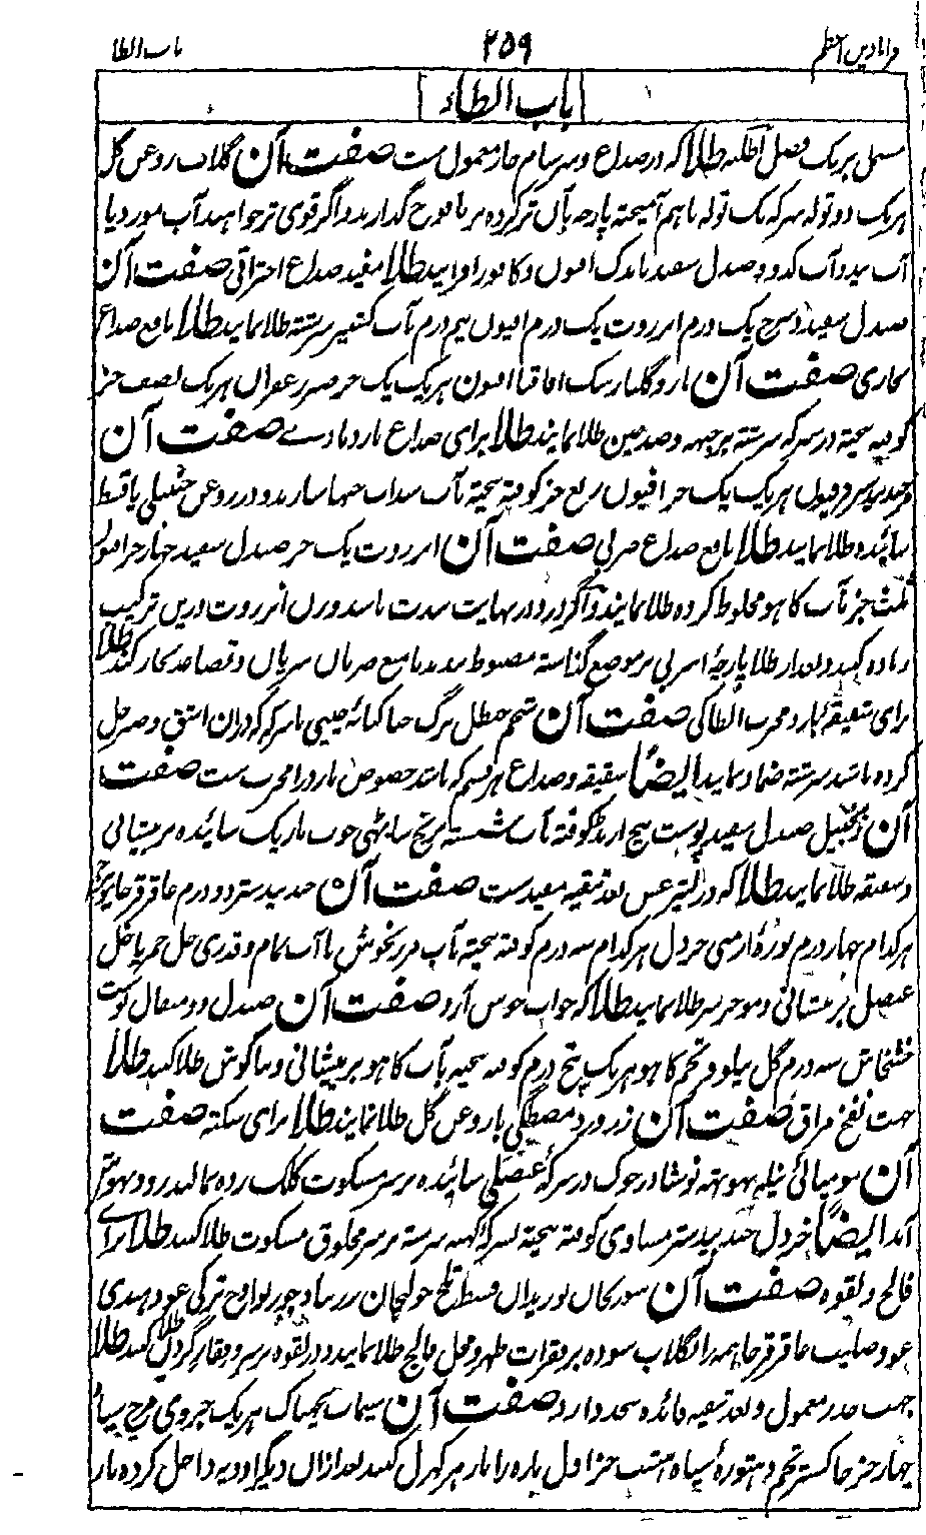 باب الطا ۲۵۹ قرابادین اعظم
باب الطاء
مشتمل بر یک فصل اطلیه طلا که در صداع و سرسام حار معمول ست صفت آن گلاب روغن گل
هر یک دو توله سرکه یک توله باهم آمیخته پارچه بآن تر کرده بر یافوخ گذارند و اگر قوی تر خواهند آب مورد یا
آب بید و آب کدو و صندل سفید باندک افیون و کافور افزایند طلا مفید صداع احتراقی صفت آن
صندل سفید و سرخ یک درم انزروت یک درم افیون نیم درم بآب کشنیز سرشته طلا نمایند طلا نافع صداع
بخاری صفت آن مازو گلنار سک اقاقیا افیون هر یک یک جز صبر زعفران هر یک نصف جز
کوفته بیخته در سرکه سرشته بر جبهه و صدغین طلا نمایند طلا برای صداع بارد مادی صفت آن
جندبیدستر فرفیون هر یک یک جز افیون ربع جز کوفته بیخته بآب سداب حبها سازند و در روغن خیلی یا قسط
سائیده طلا نمایند طلا نافع صداع ضربی صفت آن انزروت یک جز صندل سفید چهار جز افیون
ثلث جز بآب کاهو مخلوط کرده طلا نمایند و اگر درد در نهایت شدت باشد وزن انزروت درین ترکیب
زیاده کنند و بعد از طلا پارچهٔ اسربی بر موضع گذاشته مضبوط بندند تا منع ضربان شریان و تصاعد بخار کند طلا
برای شقیقهٔ بارد مجرب انطاکی صفت آن شحم حنظل برگ حنا کبابهٔ چینی بسرکه که دران اشق و صبر حل
کرده باشند سرشته ضماد نمایند ایضاً شقیقه و صداع هر قسم که باشد خصوص بارد را مجرب ست صفت
آن زنجبیل صندل سفید پوست بیخ ارنڈ کوفته بآب شسته برنج ساٹھی خوب باریک سائیده بر پیشانی
و شقیقه طلا نمایند طلا که در لیثرغس بعد تنقیه مفید ست صفت آن جندبیدستر دو درم عاقرقرحا
هر کدام چهار درم بورهٔ ارمنی خردل هر کدام سه درم کوفته بیخته بآب مرزنجوش یا آب نمام و قدری خل خمر یا خل
عنصل بر پیشانی و موخر سر طلا نمایند طلا که خواب خوش آرد صفت آن صندل دو مثقال پوست
خشخاش سه درم گل نیلوفر تخم کاهو هر یک پنج درم کوفته بیخته بآب کاهو بر پیشانی و بناگوش طلا کنند طلا
جهت نفخ مراق صفت آن زرورد مصطگی با روغن گل طلا نمایند طلا برای سکته صفت
آن مومیائی نیله تهوتهه نوشادر در سرکهٔ عنصلی سائیده بر سر مسکوت کلک زده بمالند زود بهوش
آید ایضاً خردل جندبیدستر مساوی کوفته بیخته بسرکهٔ کهنه سرشته بر سر محلوق مسکوت طلا کنند طلا برای
فالج و لقوه صفت آن سورنجان بوزیدان قسط تلخ خولنجان زرنباد وج ترکی عود هندی
عود صلیب عاقرقرحا همه را بگلاب سوده بر فقرات ظهر و محل فالج طلا نمایند و در لقوه بر سر و فقار گردن طلا کنند طلا
جهت خدر معمول و بعد تنقیه فائده بیحد دارد صفت آن سیماب بچهناک هر یک جزوی مرچ سیاه
چهار جز خاکستر تخم دهتورهٔ سیاه هشت جز اول پاره را کهرل کنند بعد ازان دیگر ادویه داخل کرده